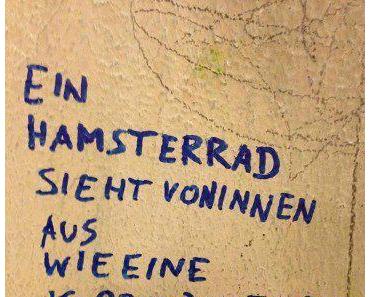 EIN
HAMSTERRAD
SIEHT VONINNEN
AUS
WIE EINE